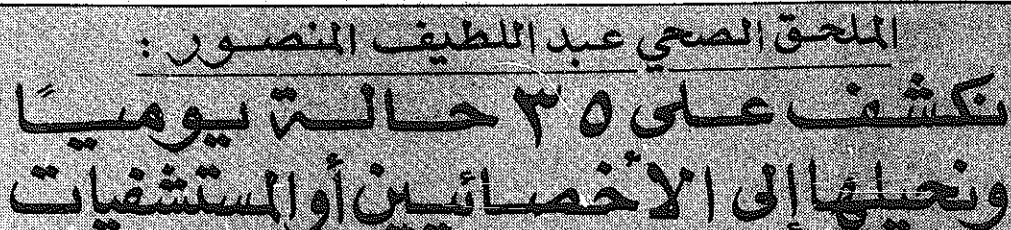 الملحق الصحي عبد اللطيف المنصور :
نكشف على ٣٥ حالة يوميًا
ونحيلها إلى الأخصائيين أو المستشفيات